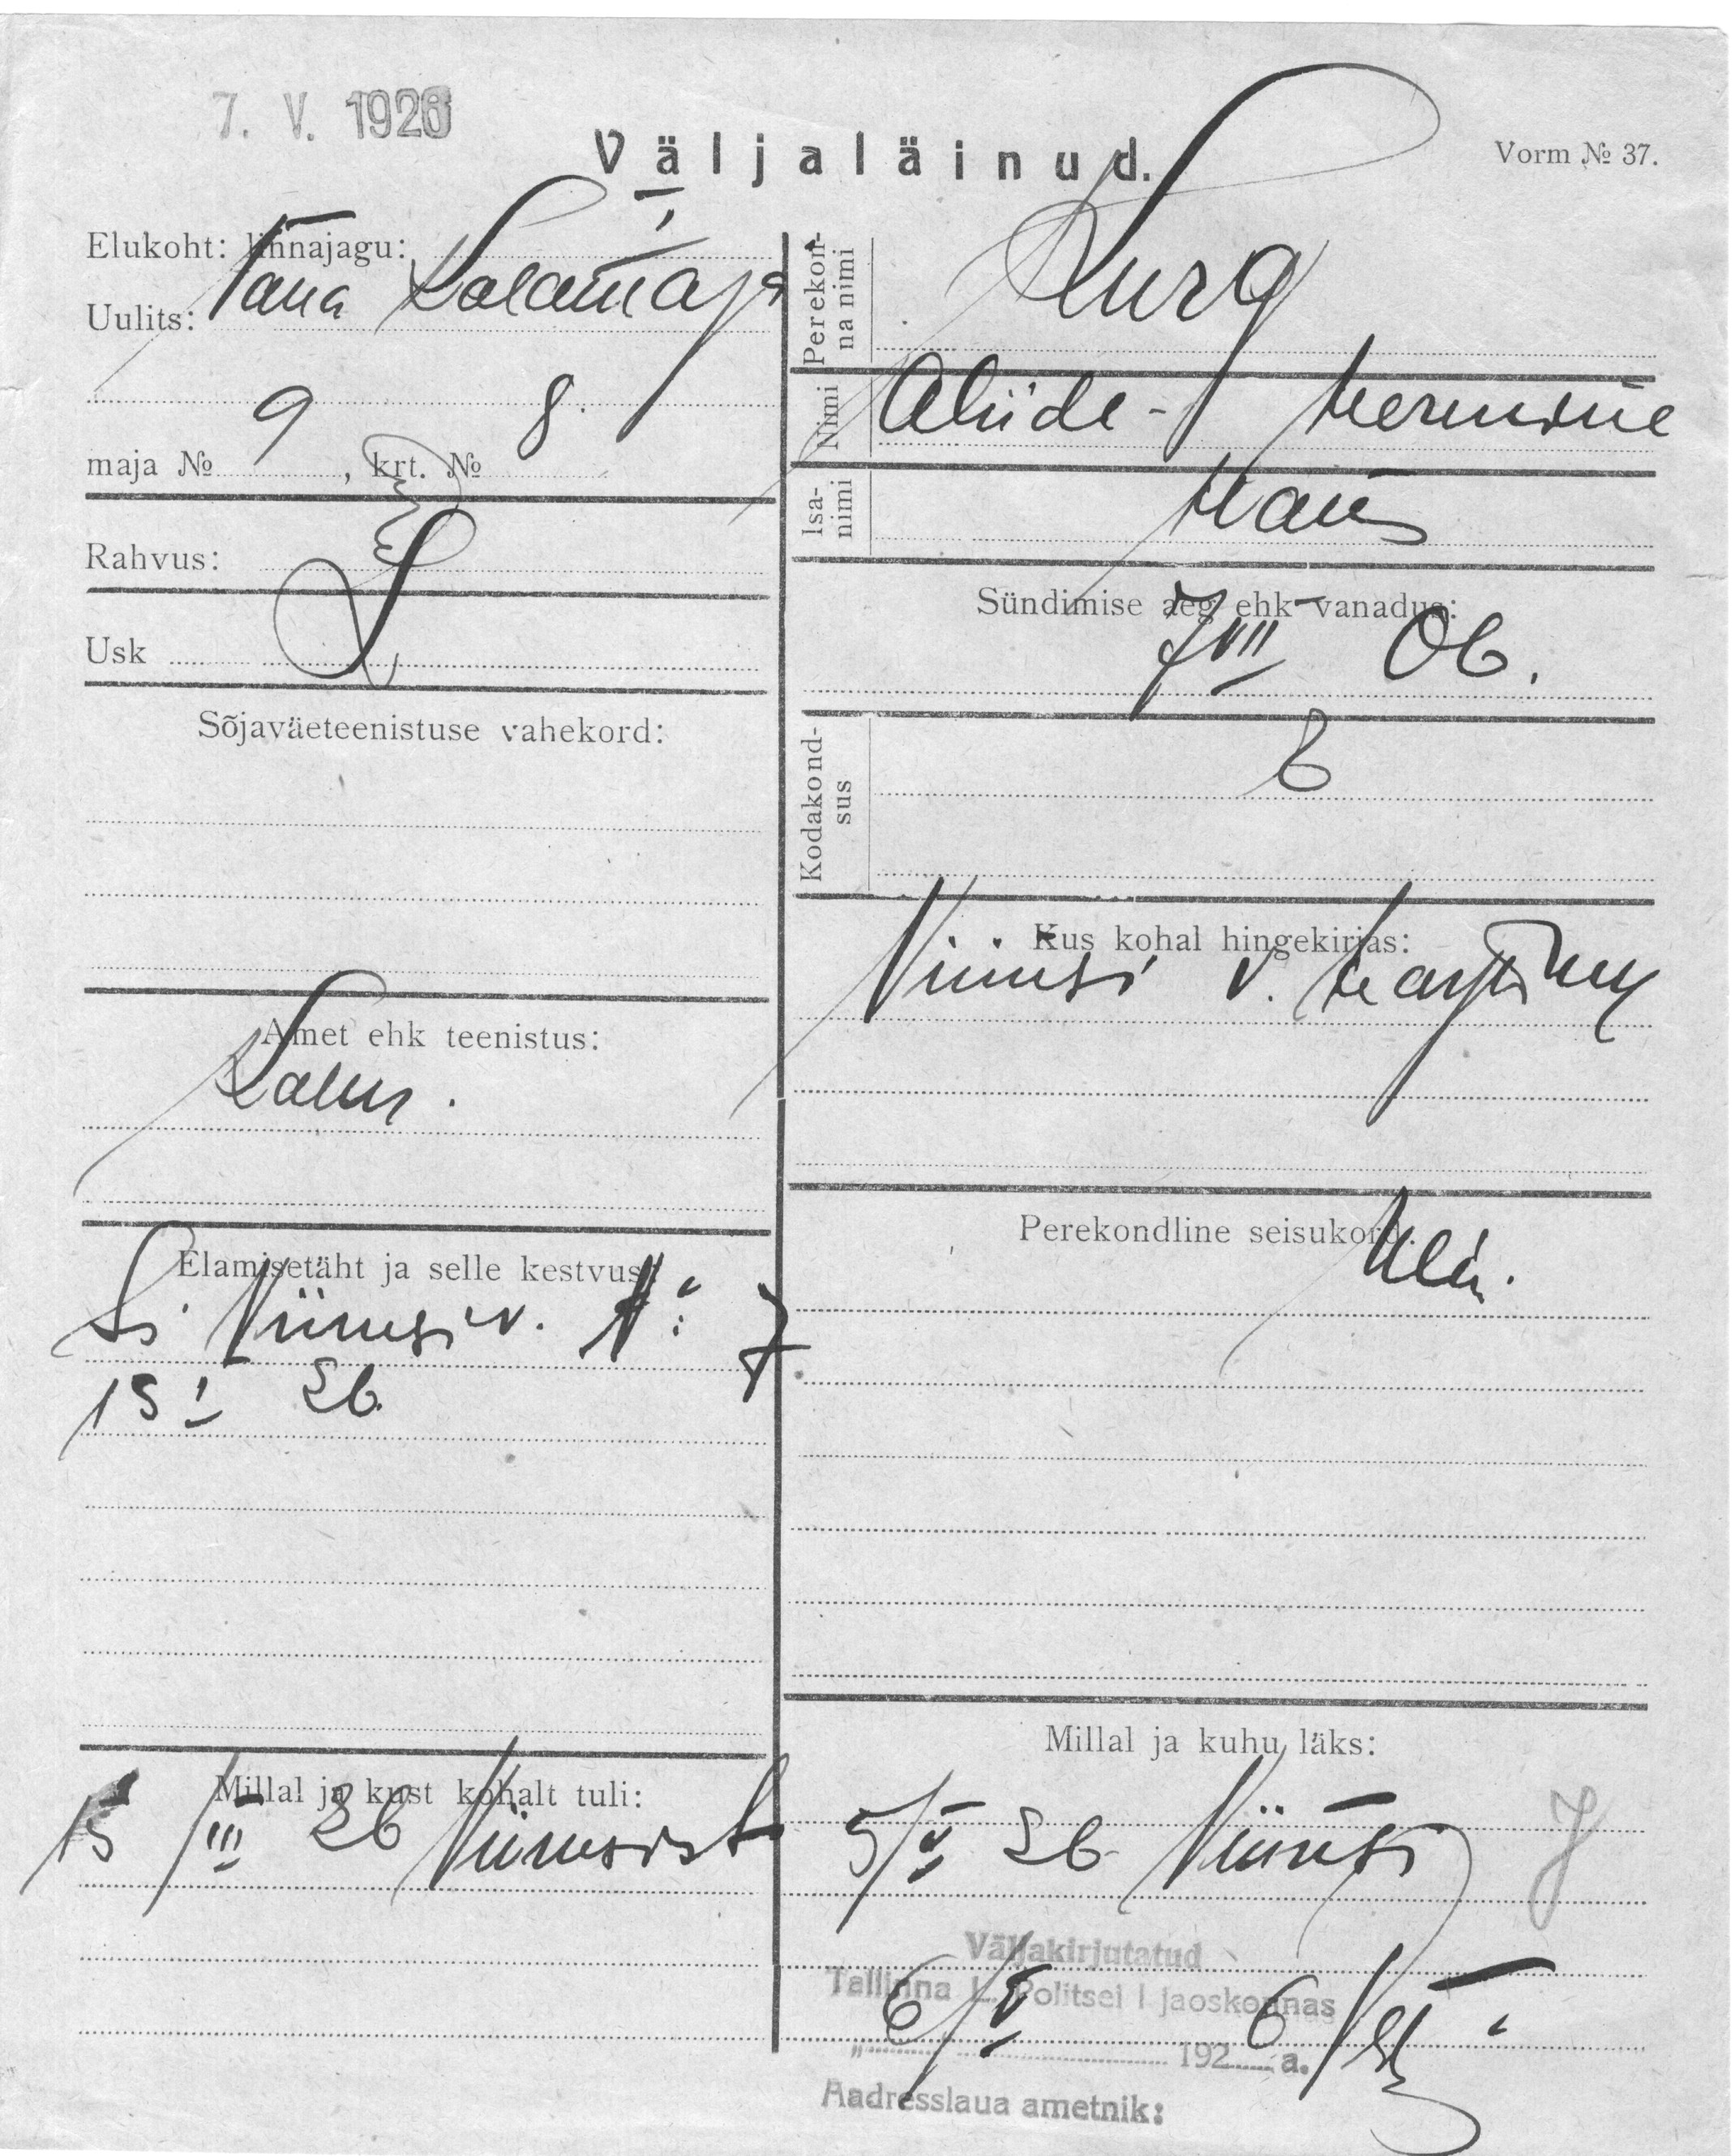 7. V. 1926
Väljaläinud.
Vorm № 37.
Elukoht: linnajagu: I
Uulits: Vana Kalamaja
maja № 9, krt. № 8.
Rahvus: E
Usk L
Sõjaväeteenistuse vahekord:
Amet ehk teenistus:
Elamisetäht ja selle kestvus:
Viimsi v. № 7
15 I 26.
Millal ja kust kohalt tuli:
15/III 26 Viimsist
Perekonna nimi
Nimi Aliide- Hermine
Isanimi Hans
Sündimise aeg ehk vanadus:
7 VII 06.
Kodakondsus E
Kus kohal hingekirjas:
Viimsi v. Harju
Perekondline seisukord:
Millal ja kuhu läks:
5/V 26 Viimsi
Väljakirjutatud
Tallinna L. Politsei I jaoskonnas
„ 6/V 1926 a.
Aadresslaua ametnik: